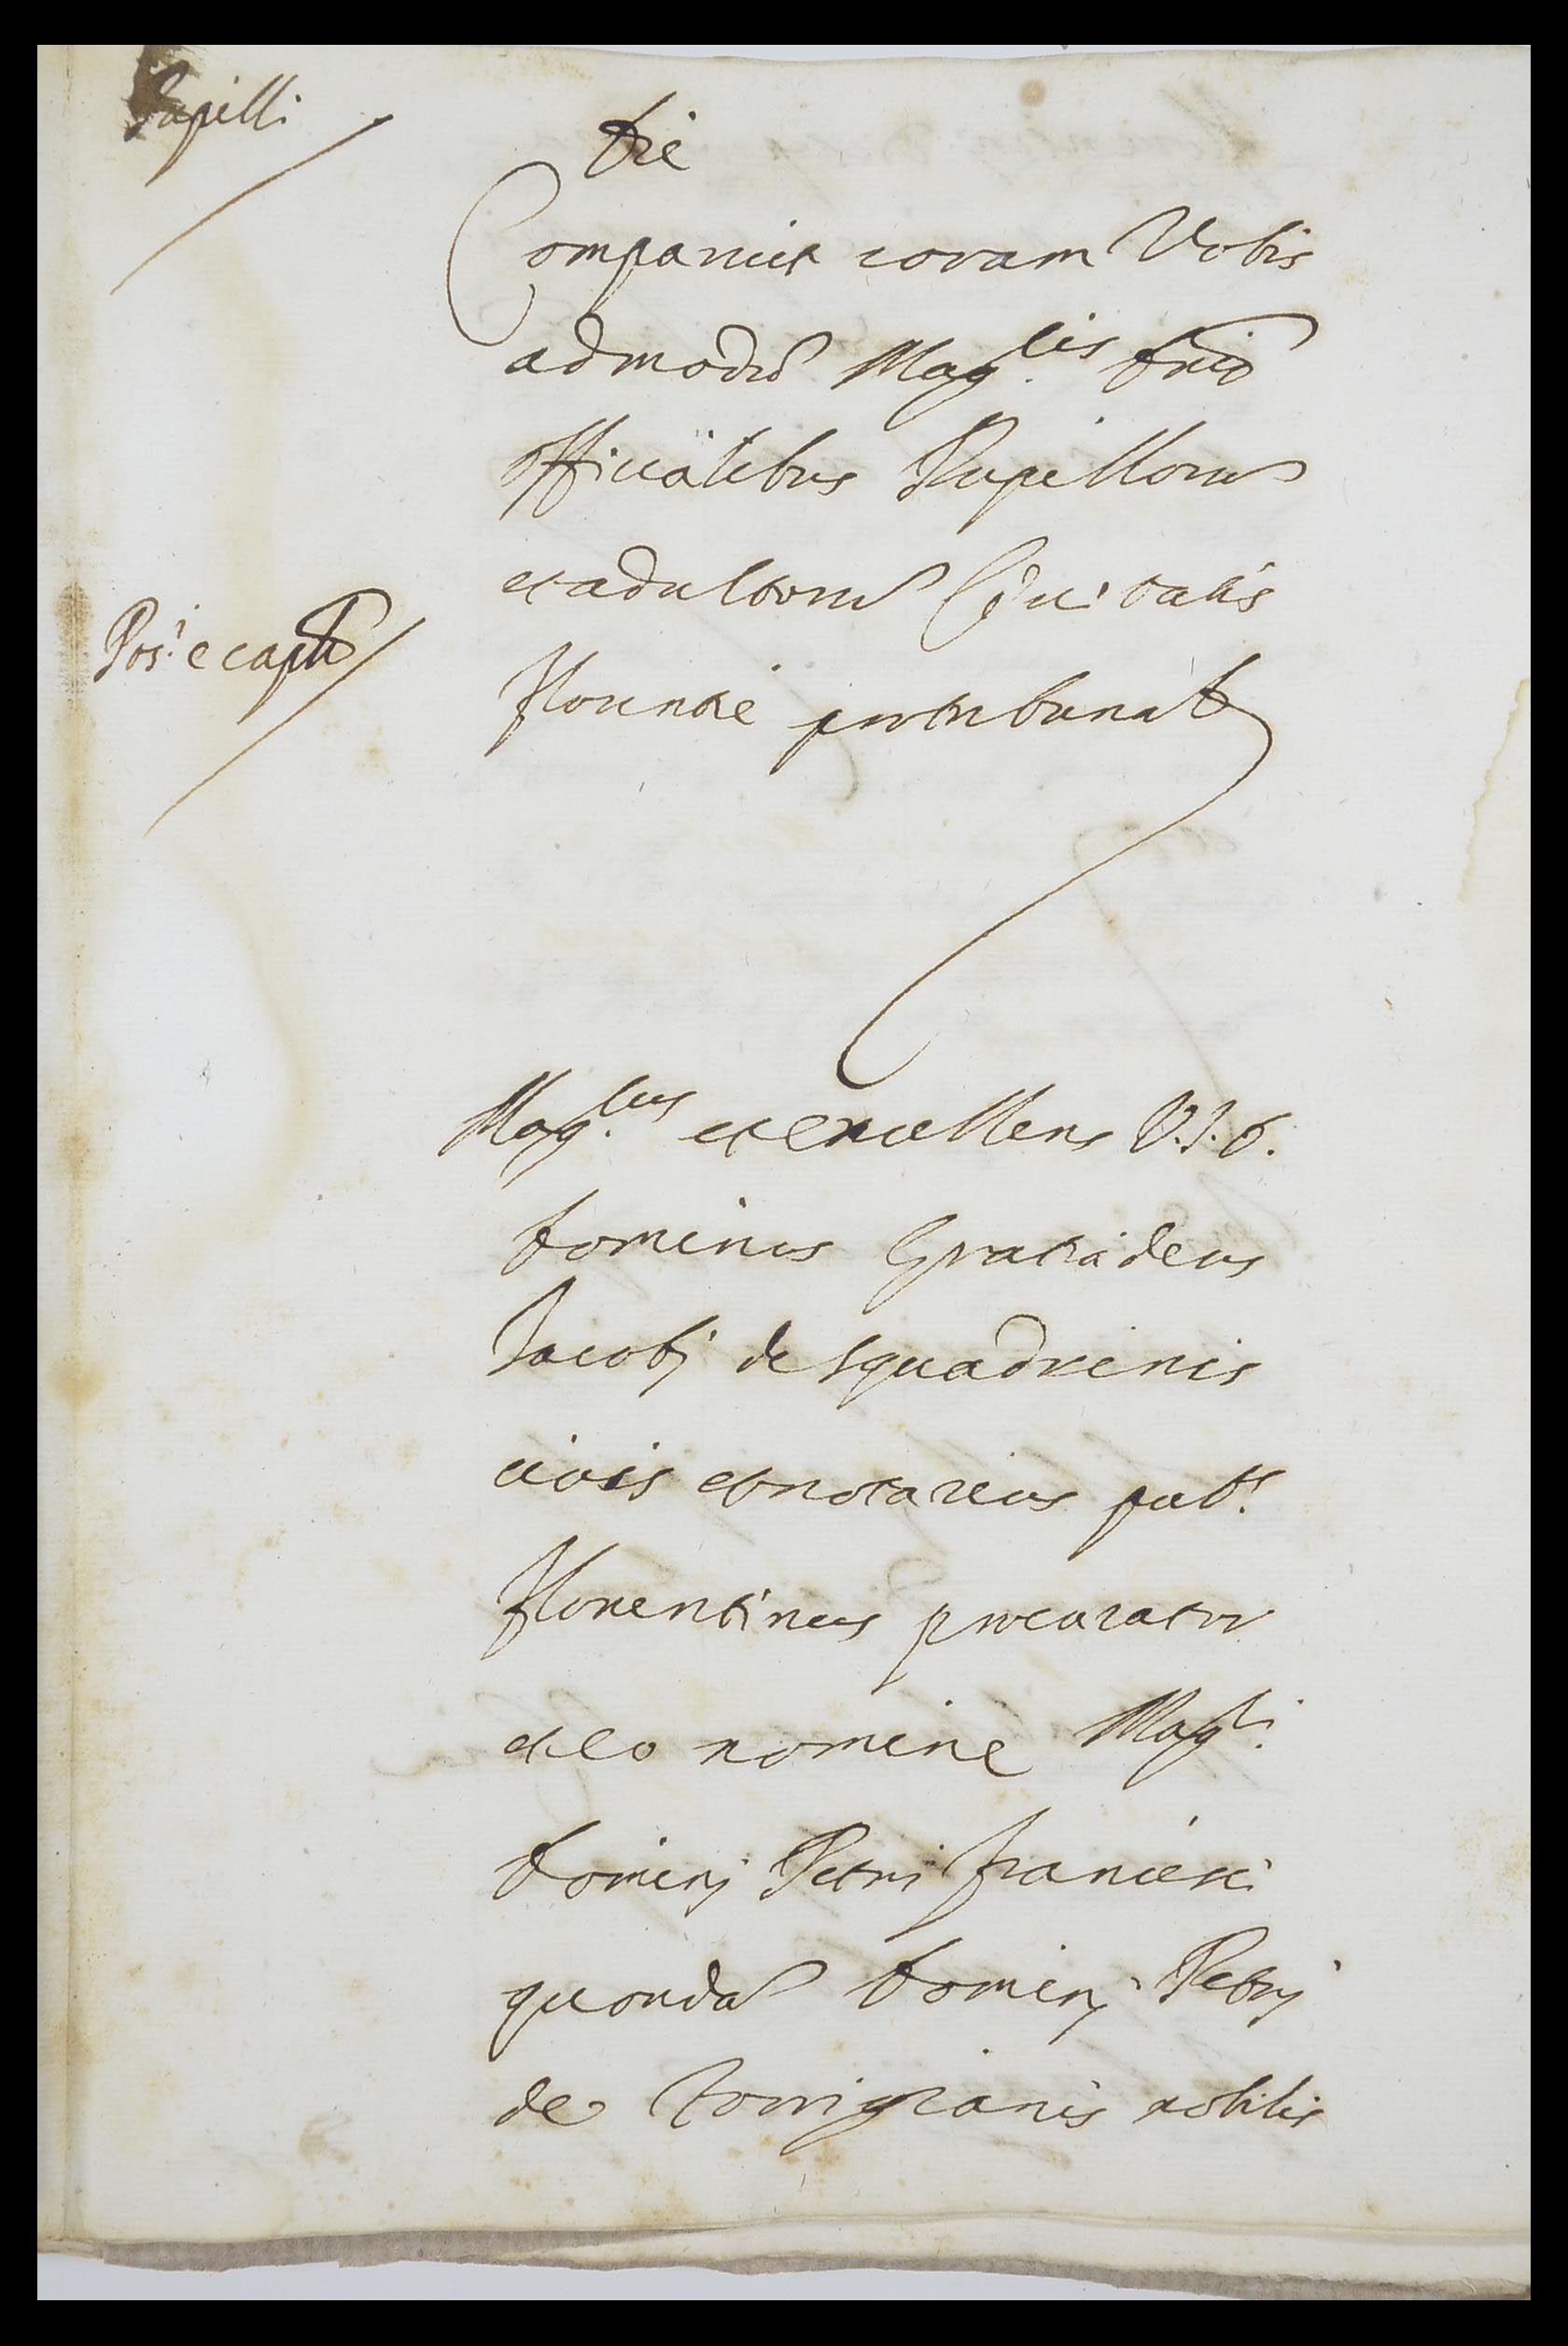 Pupilli
Die
Comparuit coram Vobis
admodũ Mag.cis Dnis
Officialibus Pupilloru
et adultoru Civitatis
Pos.i e capli
Florentie pro tribunali
Mag.cus et excellens V.J.D.
Dominus Gratiadeus
Jacobj de Squadrinis
civis et notarius pub.s
Florentinus procurator
et eo nomine Mag.ci
Dominj Petri Francisci
quonda Dominj Petrj
de nobilis